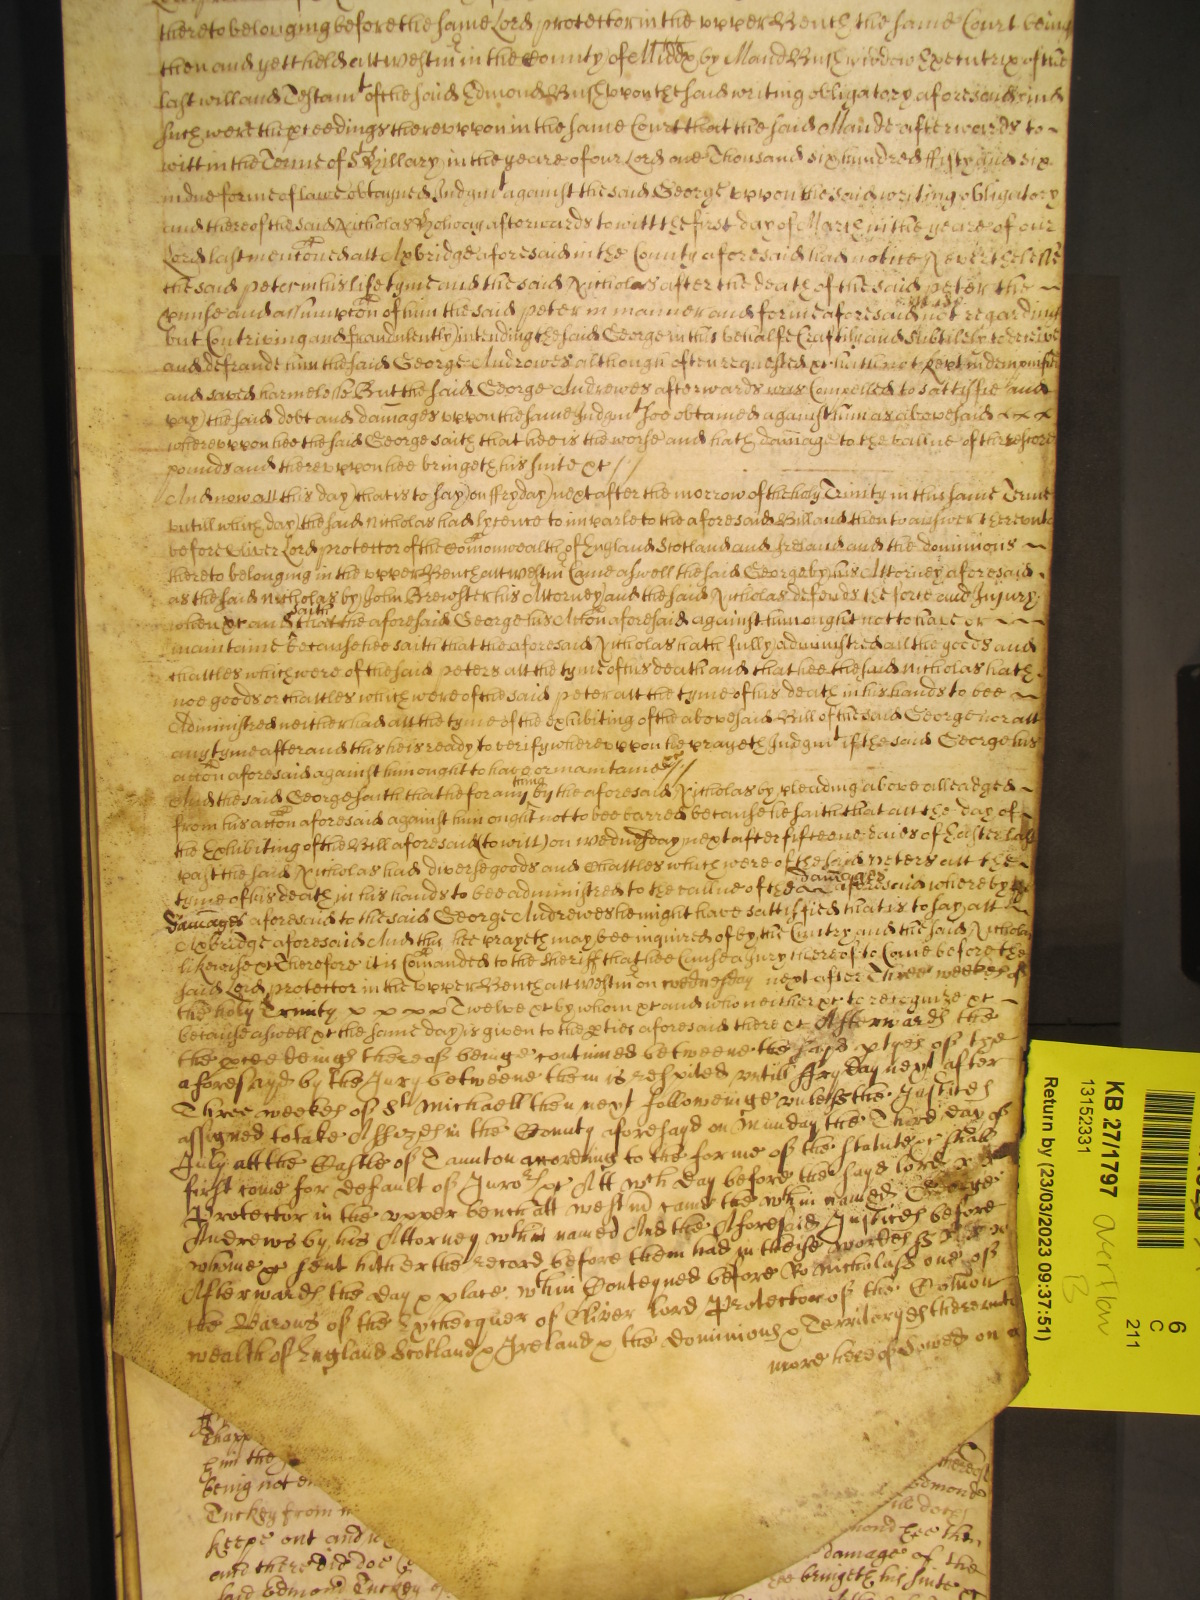 thereto belonging before the same Lord protector in the upper Bench the same Court being
then and yett held att Westm in the County of Midd by Maud Bush widow Executrix of the
last will and Testam^t of the said Edmond Bush uppon the said writing obligatory aforesaid And
such were the pceedings thereuppon in the same Court that the said Maude afterwards to
witt in the Terme of S^t Hillary in the yeare of our Lord one Thousand six hundred fifty and six
in due forme of lawe obtayned Judgm^t against the said George uppon the said writing obligatory
and thereof the said Nicholas afterwards to witt the first day of March in the yeare of our
Lord last menconed att Axbridge aforesaid in the County aforesaid had notice Neverthelesse
the said peter in his life tyme and the said Nicholas after the death of the said peter the
pmise and assumpcon of him the said peter in manner and forme aforesaid not regarding
but Contriving and fraudulently intending the said George in this behalfe Craftily and subtilely to deceive
and defraude him the said George Andrewes although often requested &c hath not kept indempnified
and saved harmelesse But the said George Andrewes afterwards was Compelled to sattisfie and
pay the said debt and damages uppon the same Judgm^t soe obtained against him as abovesaid
whereuppon hee the said George saith that hee is the worse and hath damage to the vallue of threescore
pounds and thereuppon hee bringeth his suite &c //
And now att this day that is to say on ffryday next after the morrow of the holy Trinity in this same Terme
untill which day the said Nicholas had lycence to imparle to the aforesaid Bill and then to answer thereunto
before Oliver Lord protector of the Comonwealth of England Scotland and Ireland and the dominions
thereto belonging in the upper Bench att Westm Came aswell the said George by his Attorney aforesaid
as the said Nicholas by John Brewster his Attorney and the said Nicholas defends the force and Injury
when &c and saith the aforesaid George his Accon aforesaid against him ought not to have or
maintaine because hee saith that the aforesaid Nicholas hath fully administred all the goods and
chattles which were of the said peters att the tyme of his death and that hee the said Nicholas hath
noe goods or chattles which were of the said peter att the tyme of his death in his hands to bee
Administred neither had att the tyme of the exhibiting of the abovesaid Bill of the said George nor att
any tyme after and this he is ready to verify whereuppon he prayeth Judgm^t if the said George his
accon aforesaid against him ought to have or maintaine &c //
And the said George saith that he for any thing by the aforesaid Nicholas by pleading above alleadged
from his accon aforesaid against him ought not to bee barred because he saith that att the day of
the Exhibiting of the Bill aforesaid (to witt) on wednesday next after fifteene daies of Easter last
past the said Nicholas had diverse goods and Chattles which were of the said peters att the
tyme of his death in his hands to bee administred to the vallue of the damages aforesaid whereby the
damages aforesaid to the said George Andrewes he might have sattisfied that is to say att
Axbridge aforesaid And this hee prayeth may bee inquired of by the Cuntry and the said Nicholas
likewise &c Therefore it is Comanded to the sheriff that hee Cause a jury thereof to Come before the
said Lord protector in the upper Bench att Westm on wednesday next after Three weekes of
the holy Trinity x x x x Twelve &c by whom &c and who neither &c to recognize &c
because aswell &c the same day is given to the pties aforesaid there &c Afterwards the
the pceedeings thereof beinge continued betweene the sayd ptyes of the
aforesayd by the Jury betweene them is respited untill ffryday next after
Three weekes of S^t Michaell then next followeinge unlesse the Justices
assigned to take Assizes in the County aforesayd on Munday the Third day of
July att the Castle of Taunton acording to the forme of the statute &c shall
first come for default of Juro^rs &c Att w^ch day before the sayd lord
Protector in the upper bench att westm came the w^thin named George
Andrews by his Attorney w^thin named And the Aforesaid Justices before
whome &c sent hither the record before them had in these wordes ss
Afterwards the day & place w^thin Conteyned before Ro Nicholas one of
the Barons of the Exchequer of Oliver lord Protector of the Comon
wealth of England Scotland & Ireland & the dominions & Territoryes thereunto
more hereof sowed on
Thapp
him the
being not
Tuckey from
keepe out and
and there did doe
said Edmond Tuckey
thereof
Edmond
till doe
mond hee then
damage of the
hee bringeth his suite
KB 27/1797
13152331
Return by (23/03/2023 09:37:51)
overflow
B
6
C
211